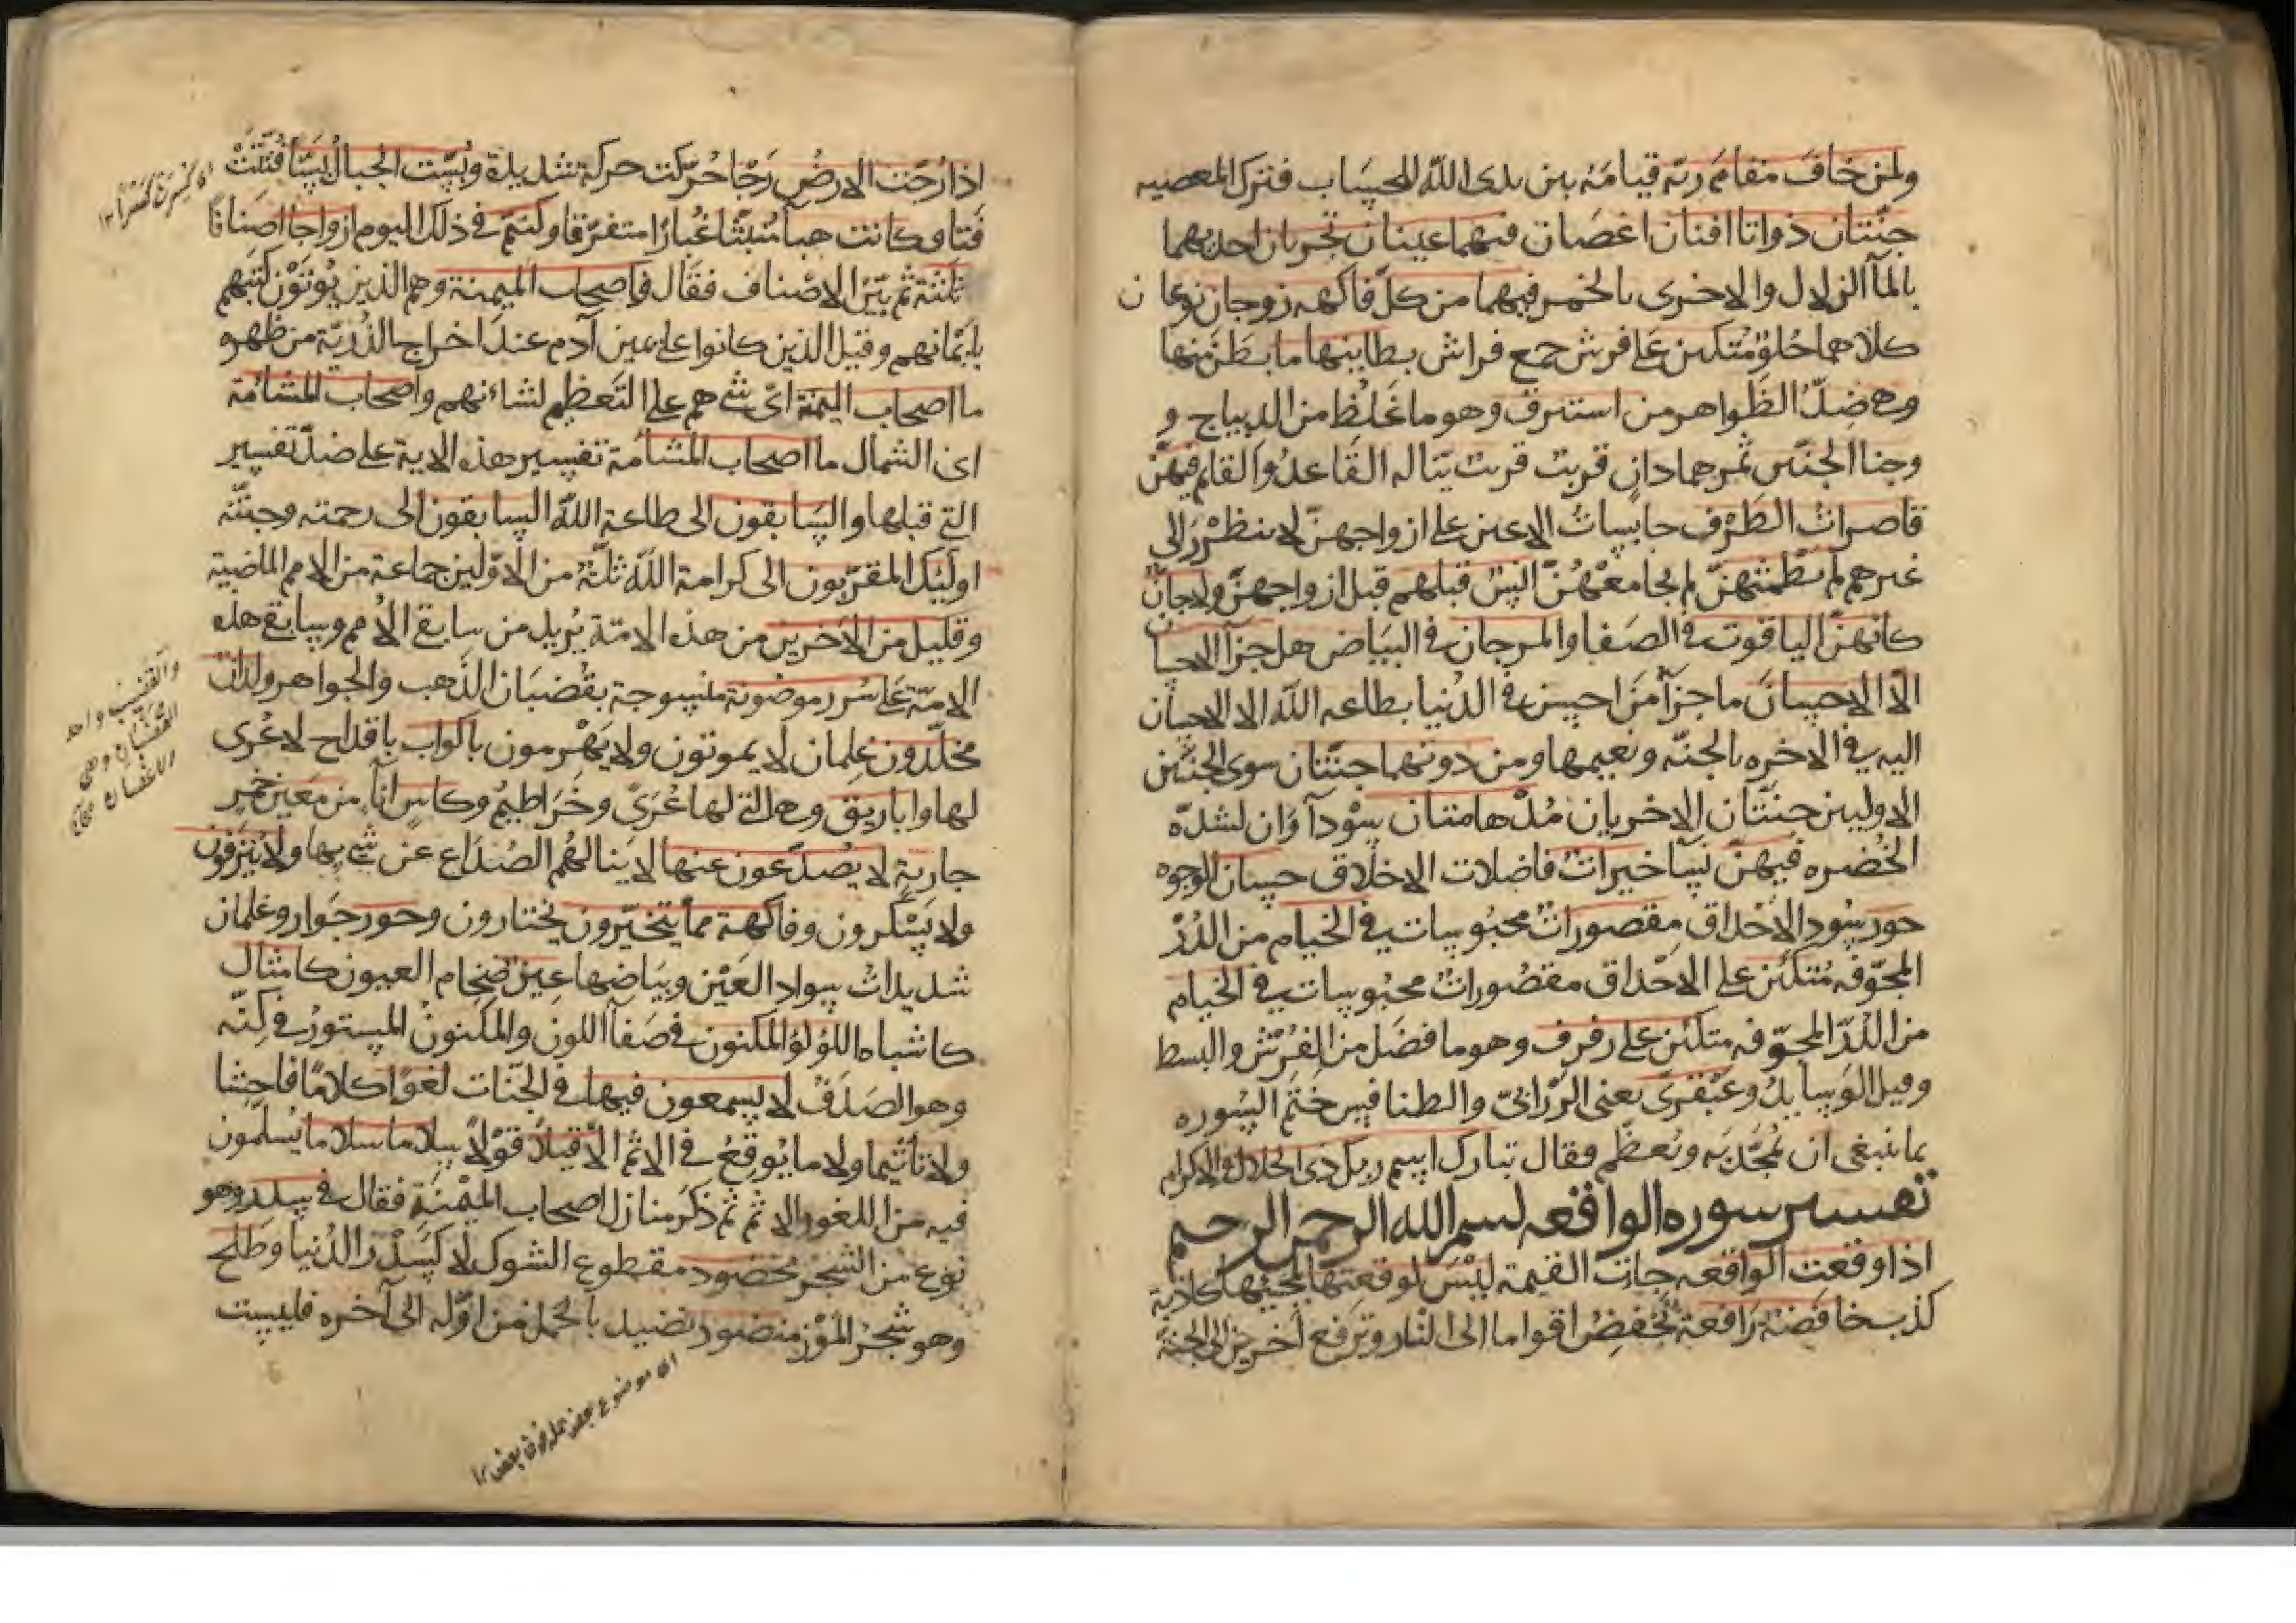 ولمن خاف مقام ربه قيامه بين يدى الله للحساب فترك المعصيه
جنتان ذواتا افنان اغصان فيهما عينان تجريان احديهما
بالمآ الزلال والاخرى بالخمر فيهما من كل فاكهه زوجان نوعان
كلاهما حلو متكئين على فرش جمع فراش بطاينها ما بطن منها
وهى ضد الظواهر من استبرق وهو ما غلظ من الديباج و
وجنا الجنتين ثمرهما دان قريب قريب يناله القاعد والقايم فيهن
قاصرات الطرف حابسات الاعين على ازواجهن لا ينظرن الى
غيرهم لم يطمثهن لم يجامعهن انس قبلهم قبل ازواجهن ولا جان
كانهن الياقوت فى الصفا والمرجان فى البياض هل جزآ الاحسان
الا الاحسان ما جزآ من احسن فى الدنيا بطاعه الله الا الاحسان
اليه فى الاخره بالجنه ونعيمها ومن دونهما جنتان سوى الجنتين
الاوليين جنتان الاخريان مدهامتان سودآوان لشدة
الخضره فيهن نسآ خيرات فاضلات الاخلاق حسان الوجوه
حور سود الاحداق مقصورات محبوسات فى الخيام من الدر
المجوفه متكئين على الاحداق مقصورات محبوسات فى الخيام
من الدر المجوفه متكئين على رفرف وهو ما فضل من الفرش والبسط
وقيل الوسايد وعبقرى يعنى الزرابى والطنافيس ختم السوره
بما ينبغى ان يمجد به ويعظم فقال تبارك اسم ربك ذى الجلال والاكرام
تفسير سوره الواقعه بسم الله الرحمن الرحيم
اذا وقعت الواقعه جات القيمة ليس لوقعتها لمجيئها كاذبة
كذب خافضة رافعة تخفض اقواما الى النار وترفع آخرين الى الجنة
اذا رجت الارض رجا حركت حركة شديدة وبست الجبال بسا فتتت
فتا وكانت هبآ منبثا غبارا متفرقا وكنتم فى ذلك اليوم ازواجا اصنافا
ثلثة ثم بين الاصناف فقال فاصحاب الميمنة وهم الذين يوتون كتبهم
بايمانهم وقيل الذين كانوا على يمين آدم عند اخراج الذرية من ظهره
ما اصحاب الميمنة اى شى هم على التعظيم لشانهم واصحاب المشأمة
اى الشمال ما اصحاب المشأمة تفسير هذه الاية على ضد تفسير
التى قبلها والسابقون الى طاعة الله السابقون الى رحمته وجنته
اولئك المقربون الى كرامة الله ثلة من الاولين جماعة من الامم الماضية
وقليل من الآخرين من هذه الامة يريد من سابقى الامم وسابقى هذه
الامة على سرر موضونة منسوجة بقضبان الذهب والجواهر ولدان
مخلدون غلمان لا يموتون ولا يهرمون باكواب باقداح لا عرى
لها واباريق وهى التى لها عرى وخراطيم وكاس انآء من معين خمر
جارية لا يصدعون عنها لا ينالهم الصداع عن شربها ولا ينزفون
ولا يسكرون وفاكهة مما يتخيرون يختارون وحور جوار وغلمان
شديدات سواد العين وبياضها عين ضخام العيون كامثال
كاشباه اللؤلؤ المكنون فى صفآ اللون والمكنون المستور فى كنه
وهو الصدف لا يسمعون فيها فى الجنات لغوا كلاما فاحشا
ولا تأثيما ولا ما يوقع فى الاثم الا قيلا قولا سلاما سلاما يسلمون
فيه من اللغو والاثم ثم ذكر منازل اصحاب الميمنة فقال فى سدر وهو
نوع من الشجر مخضود مقطوع الشوك لا كسدر الدنيا وطلح
وهو شجر الموز منضود نضيد بالحمل من اوله الى آخره فليست
والقضيب واحد
القضبان وهى
الاغصان
اى موضوع بعض على فوق بعض ١٢